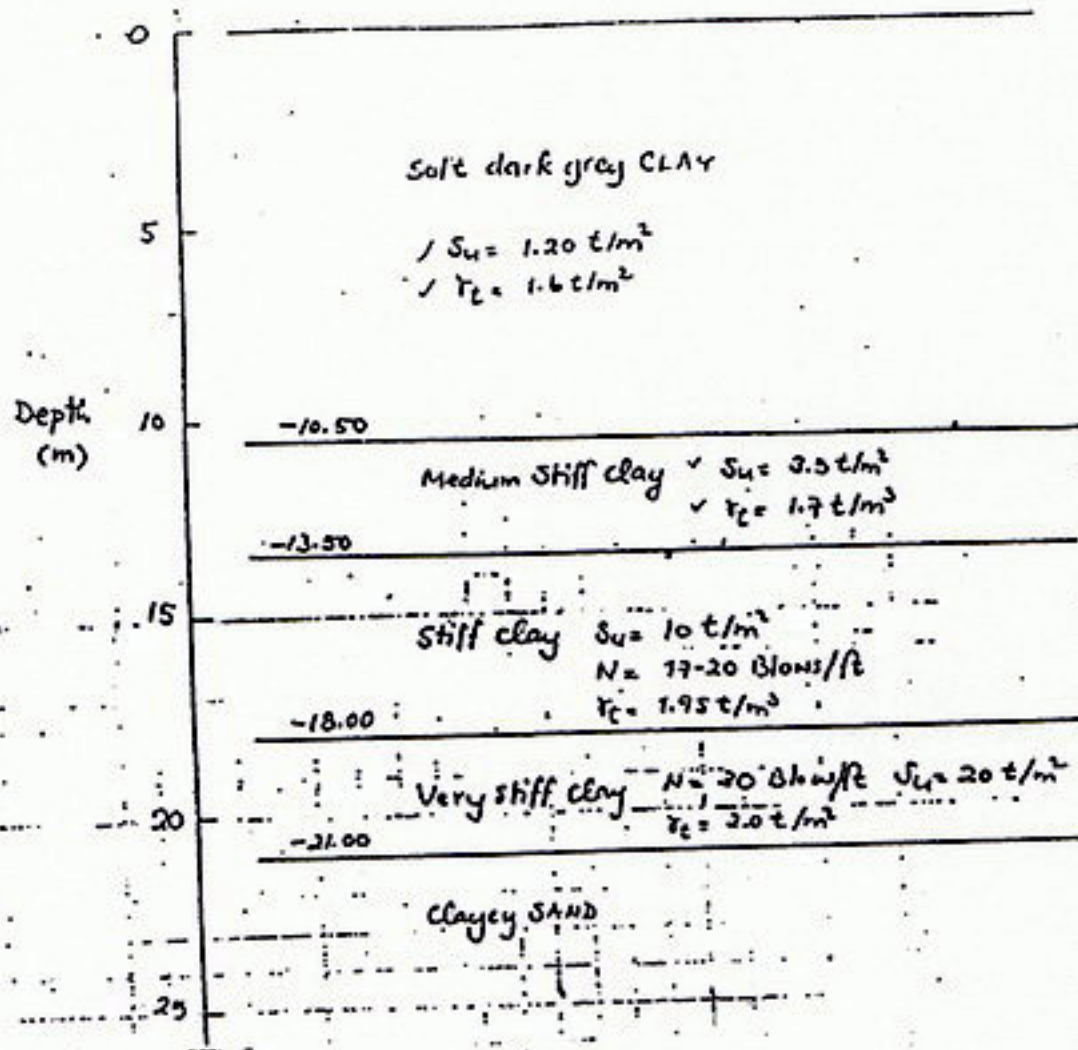 0
Soft dark gray CLAY
5
✓ Su = 1.20 t/m²
✓ γt = 1.6 t/m²
Depth
(m)
10
-10.50
Medium Stiff clay ✓ Su = 3.5 t/m²
✓ γt = 1.7 t/m³
-13.50
15
Stiff clay Su = 10 t/m²
N = 17-20 Blows/ft
γt = 1.95 t/m³
-18.00
Very stiff clay N = 30 Blows/ft Su = 20 t/m²
20
γt = 2.0 t/m²
-21.00
Clayey SAND
25